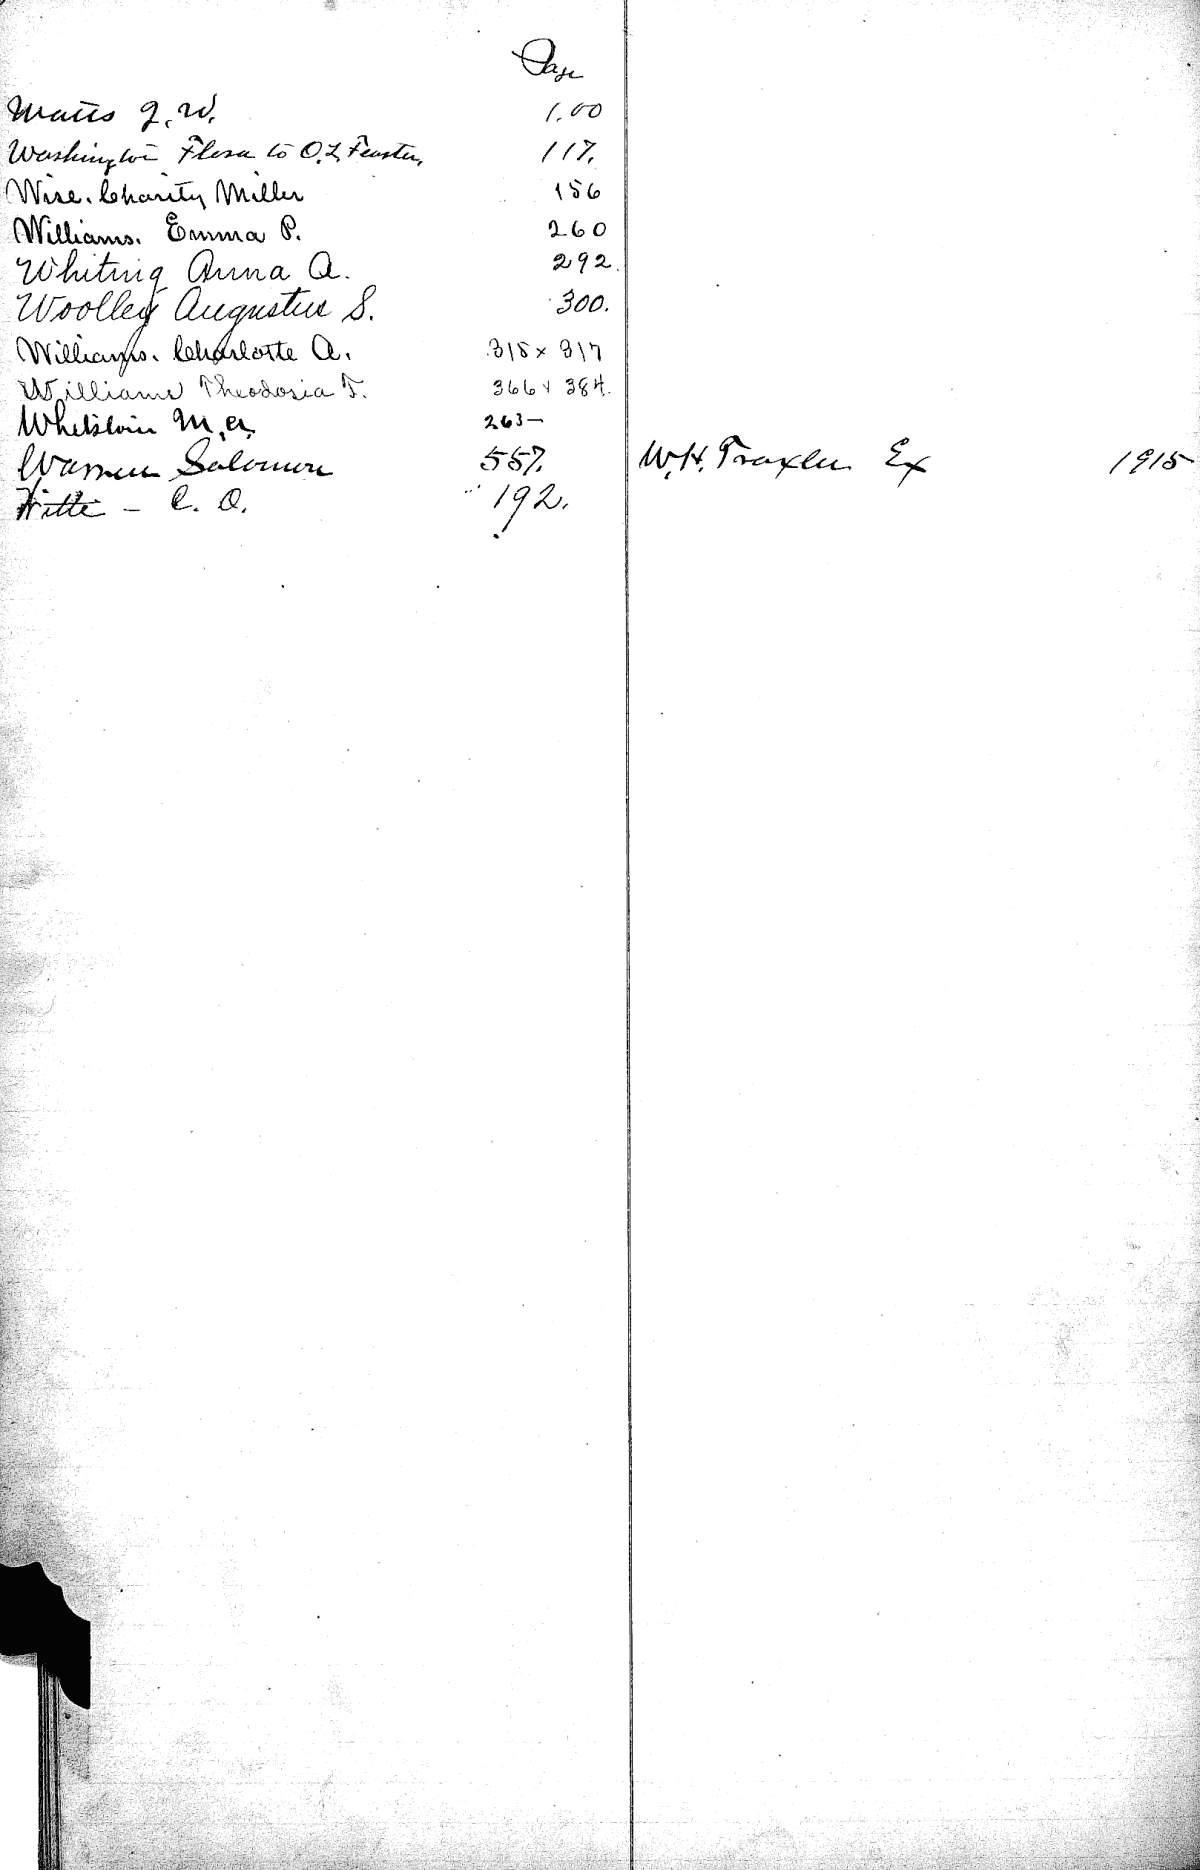 Page
Watts J. W. 1.00
Washington Flora to O. L. Feaster, 117.
Wise. Charity Miller 156
Williams. Emma P. 260
Whiting Anna A. 292.
Woolley Augustus S. 300.
Williams. Charlotte A. 315 x 317
Williams Theodosia T. 366 & 384.
M. A. 263—
Warren Solomon 557. W. H. Traxler Ex 1915
Witte — C. O. 192.